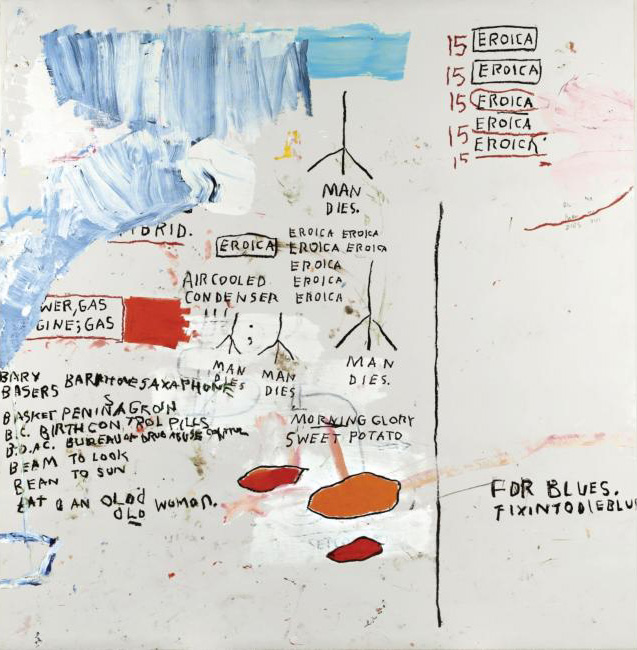 15 EROICA
15 EROICA
15 EROICA
15 EROICA
15 EROICA
MAN
DIES.
BRID.
EROICA
EROICA EROICA
EROICA EROICA
EROICA
EROICA
EROICA
AIR COOLED
CONDENSER
WER, GAS
GINE; GAS
;
MAN
DIES
MAN
DIES
MAN
DIES.
BARY BARITONE SAXAPHONE
BASERS
BASKET PENINAGROIN
B.C. BIRTH CONTROL PILLS
B.D.A.C. BUREAU OF DRUG ABUSE CONTROL
BEAM TO LOOK
BEAN TO SUN
EAT @ AN OLD WOMAN.
OLD
MORNING GLORY
SWEET POTATO
FOR BLUES.
FIXINTODIEBLU